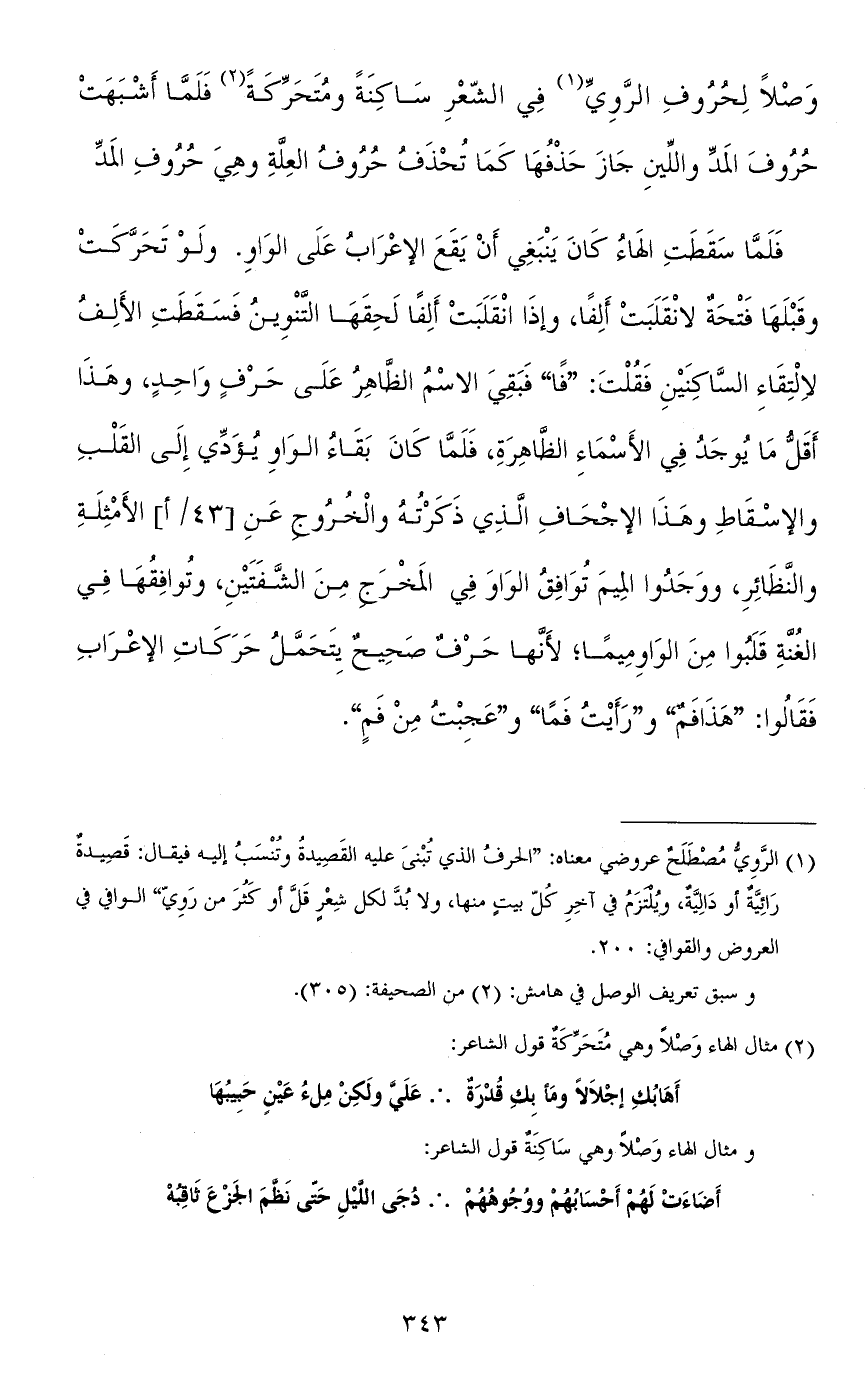 وَصْلاً لِحُرُوفِ الرَّوِيِّ(١) فِي الشّعْرِ سَاكِنَةً ومُتَحَرِّكَةً(٢) فَلَمَّا أَشْبَهَتْ
حُرُوفَ المَدِّ واللِّينِ جَازَ حَذْفُهَا كَمَا تُحْذَفُ حُرُوفُ العِلَّةِ وهِيَ حُرُوفِ المَدِّ
فَلَمَّا سَقَطَتِ الهَاءُ كَانَ يَنْبَغِي أَنْ يَقَعَ الإعْرَابُ عَلَى الوَاوِ. ولَوْ تَحَرَّكَتْ
وقَبْلَهَا فَتْحَةٌ لانْقَلَبَتْ أَلِفًا، وإذَا انْقَلَبَتْ أَلِفًا لَحِقَهَا التَّنْوِينُ فَسَقَطَتِ الأَلِفُ
لاِلْتِقَاءِ السَّاكِنَيْنِ فَقُلْتَ: ”فًا“ فَبَقِيَ الاسْمُ الظَّاهِرُ عَلَى حَرْفٍ وَاحِدٍ، وهَذَا
أَقَلُّ مَا يُوجَدُ فِي الأَسْمَاءِ الظَّاهِرَةِ، فَلَمَّا كَانَ بَقَاءُ الوَاوِ يُؤَدِّي إلَى القَلْبِ
والإسْقَاطِ وهَذَا الإجْحَافِ الَّذِي ذَكَرْتُهُ والْخُرُوجِ عَنِ [٤٣/ أ] الأَمْثِلَةِ
والنَّظَائِرِ، ووَجَدُوا المِيمَ تُوَافِقُ الوَاوَ فِي المَخْرَجِ مِنَ الشَّفَتَيْنِ، وتُوافِقُهَا فِي
الغُنَّةِ قَلَبُوا مِنَ الوَاوِمِيمًا؛ لأَنَّها حَرْفٌ صَحِيحٌ يَتَحَمَّلُ حَرَكَاتِ الإعْرَابِ
فَقَالُوا: ”هَذَافَمٌ“ و”رَأَيْتُ فَمًا“ و”عَجِبْتُ مِنْ فَمٍ“.
(١) الرَّوِيُّ مُصْطَلَحٌ عروضي معناه: ”الحرفُ الذي تُبْنىَ عليه القَصِيدةُ وتُنْسَبُ إليه فيقال: قَصِيدةٌ
رَائِيَّةٌ أو دَالِيَّةٌ، ويُلْتَزَمُ في آخِرِ كُلّ بيتٍ منها، ولا بُدَّ لكل شِعْرٍ قَلَّ أو كَثُرَ من رَوِيّ“ الوافي في
العروض والقوافي: ٢٠٠.
و سبق تعريف الوصل في هامش: (٢) من الصحيفة: (٣٠٥).
(٢) مثال الهاء وَصْلاً وهي مُتَحَرِّكَةٌ قول الشاعر:
أَهَابُكِ إجْلاَلاً ومَا بِكِ قُدْرَةٌ ∴ عَلَيَّ ولَكِنْ مِلءُ عَيْنٍ حَبِيبُهَا
و مثال الهاء وَصْلاً وهي سَاكِنَةٌ قول الشاعر:
أَضَاءَتْ لَهُمْ أَحْسَابُهُمْ ووُجُوهُهُمْ ∴ دُجَى اللَّيْلِ حَتّى نَظَّمَ الجَزْعَ ثَاقِبُهْ
٣٤٣